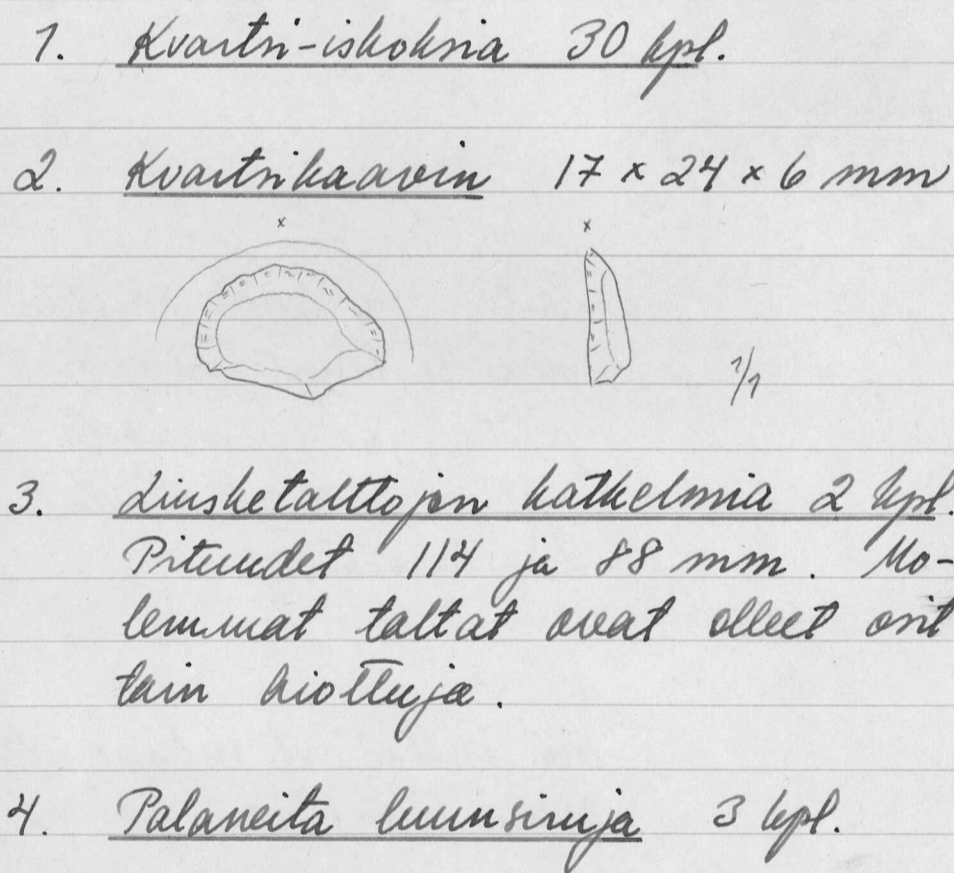 1. Kvartsi-iskoksia 30 kpl.
2. Kvartsikaavin 17 x 24 x 6 mm
x x
1/1
3. Liusketalttojen katkelmia 2 kpl.
Pituudet 114 ja 88 mm. Mo-
lemmat taltat ovat olleet osit
tain hiottuja.
4. Palaneita luunsiruja 3 kpl.